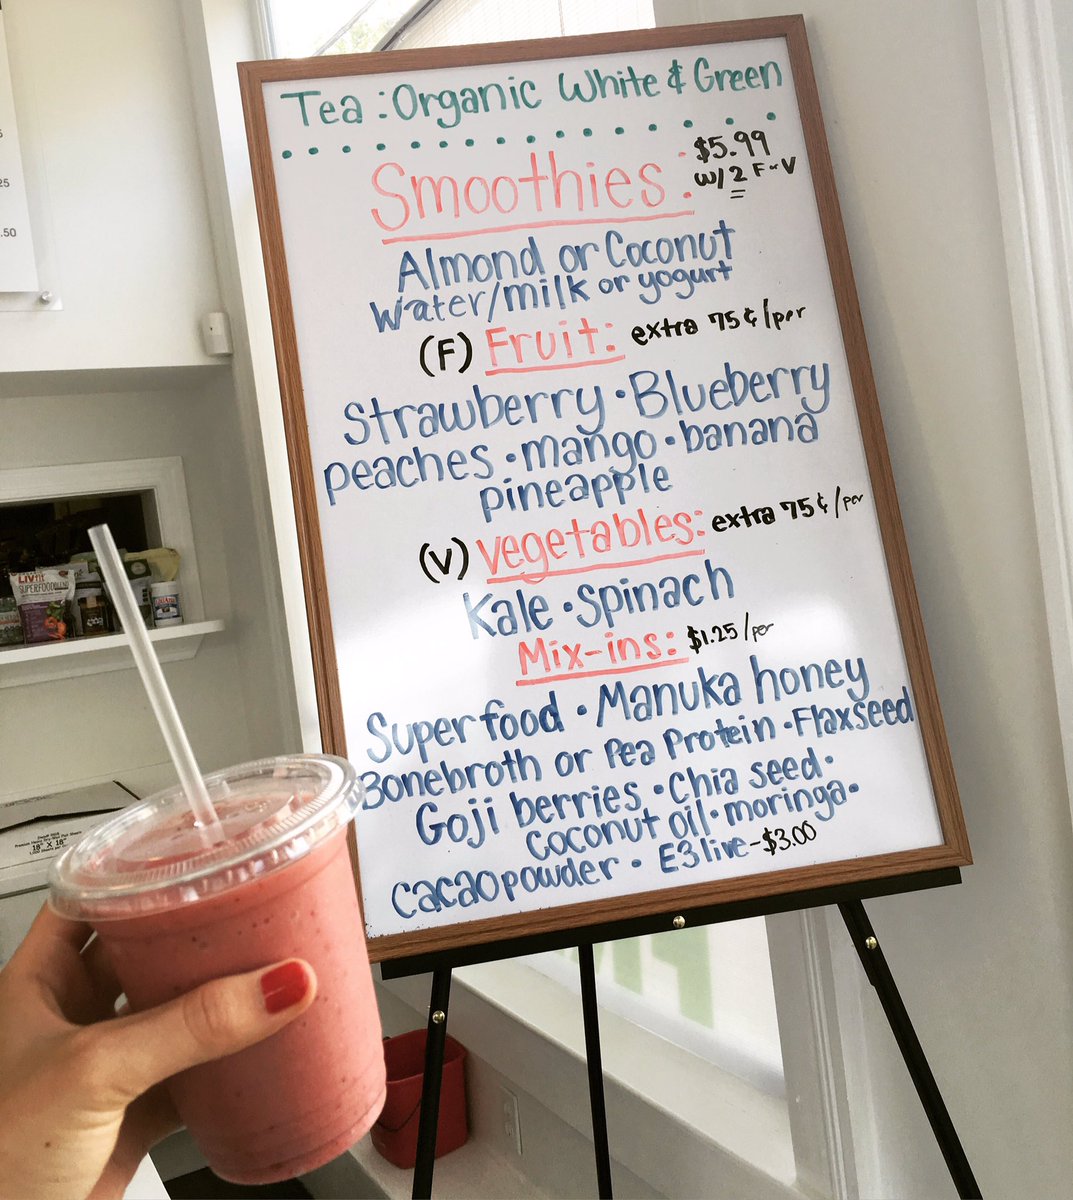 Tea: Organic White & Green
Smoothies: $5.99
w/ 2 F or V
Almond or Coconut
Water/milk or yogurt
(F) Fruit: extra 75¢/per
Strawberry • Blueberry
peaches • mango • banana
pineapple
(V) Vegetables: extra 75¢/per
Kale • Spinach
Mix-ins: $1.25/per
Superfood • Manuka honey
Bonebroth or Pea Protein • Flaxseed
Goji berries • Chia seed •
Coconut oil • moringa •
Cacao powder • E3live - $3.00
25
.50
LIVfit
SUPERFOOD BLEND
18" X 18"